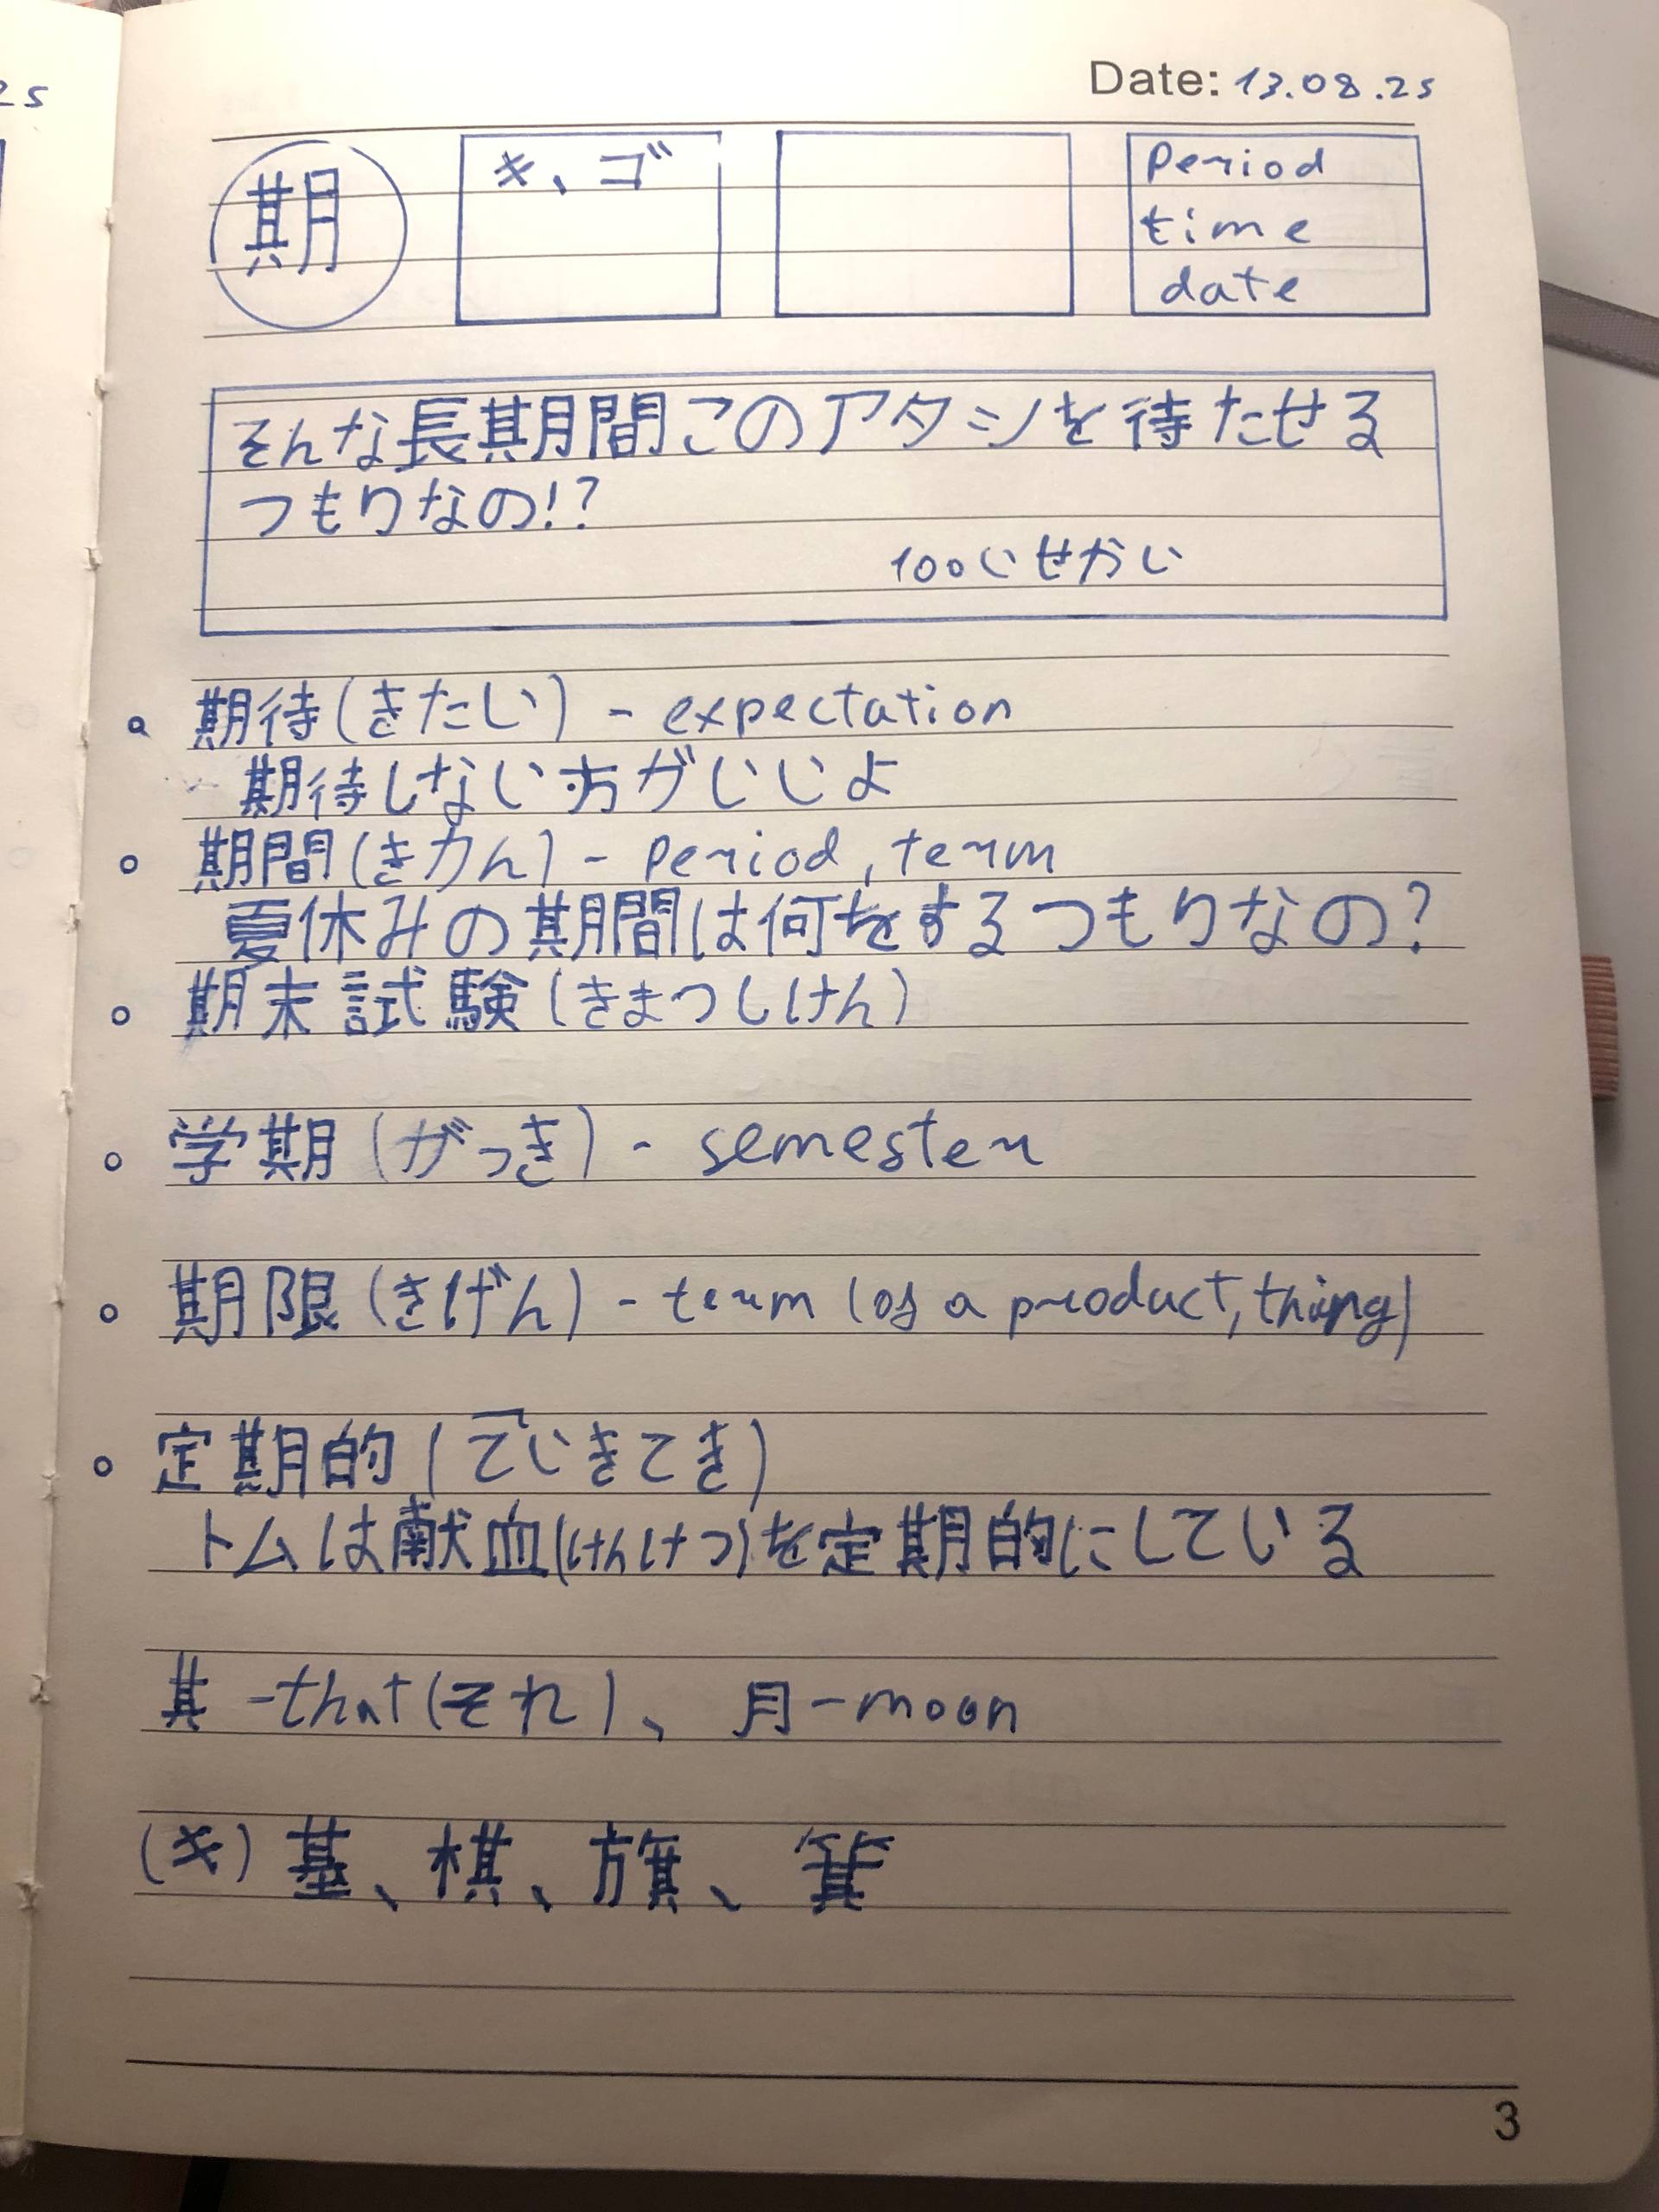 25
Date: 13.08.25
期
キ、ゴ
period
time
date
そんな長期間このアタシを待たせる
つもりなの!?
100いせかい
期待(きたい) - expectation
期待しない方がいいよ
期間(きかん) - period, term
夏休みの期間は何をするつもりなの?
期末試験(きまつしけん)
学期(がっき) - semester
期限(きげん) - term (of a product, thing)
定期的(ていきてき)
トムは献血(けんけつ)を定期的にしている
其 - that(それ)、月 - moon
(キ) 基、棋、旗、箕
3